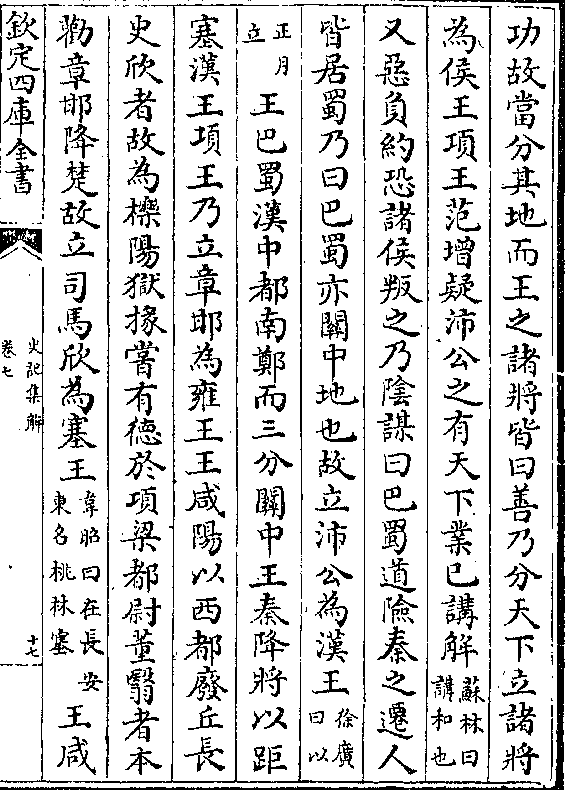 功故當分其地而王之諸將皆曰善乃分天下立諸將
為侯王項王范增疑沛公之有天下業已講解蘇林曰講和也
又惡負約恐諸侯叛之乃陰謀曰巴蜀道險秦之遷人
皆居蜀乃曰巴蜀亦關中地也故立沛公為漢王徐廣曰以
正月立王巴蜀漢中都南鄭而三分關中王秦降將以距
塞漢王項王乃立章邯為雍王王咸陽以西都廢丘長
史欣者故為櫟陽獄掾嘗有德於項梁都尉董翳者本
勸章邯降楚故立司馬欣為塞王韋昭曰在長安東名桃林塞王咸
欽定四庫全書
史記集解
卷七
十七